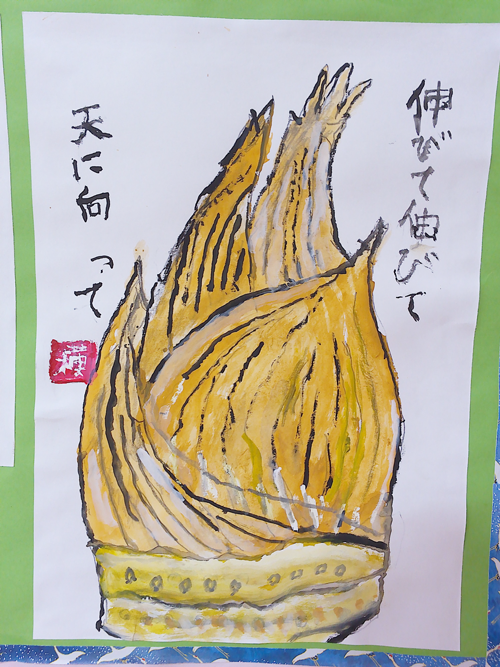 伸びて伸びて
天に向って